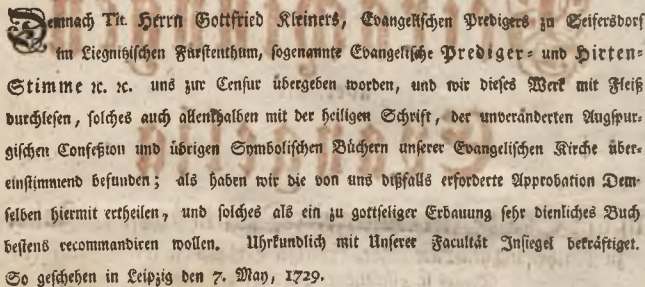 Demnach Tit. Herrn Gottfried Kleiners, Evangelischen Predigers zu Seifersdorf
im Liegnitzischen Fürstenthum, sogenannte Evangelische Prediger- und Hirten-
Stimme ꝛc. ꝛc. uns zur Censur übergeben worden, und wir dieses Werk mit Fleiß
durchlesen, solches auch allenthalben mit der heiligen Schrift, der unveränderten Augspur-
gischen Confeßion und übrigen Symbolischen Büchern unserer Evangelischen Kirche über-
einstimmend befunden; als haben wir die von uns dißfalls erforderte Approbation Dem-
selben hiermit ertheilen, und solches als ein zu gottseliger Erbauung sehr dienliches Buch
bestens recommandiren wollen. Uhrkundlich mit Unserer Facultät Insiegel bekräftiget.
So geschehen in Leipzig den 7. May, 1729.